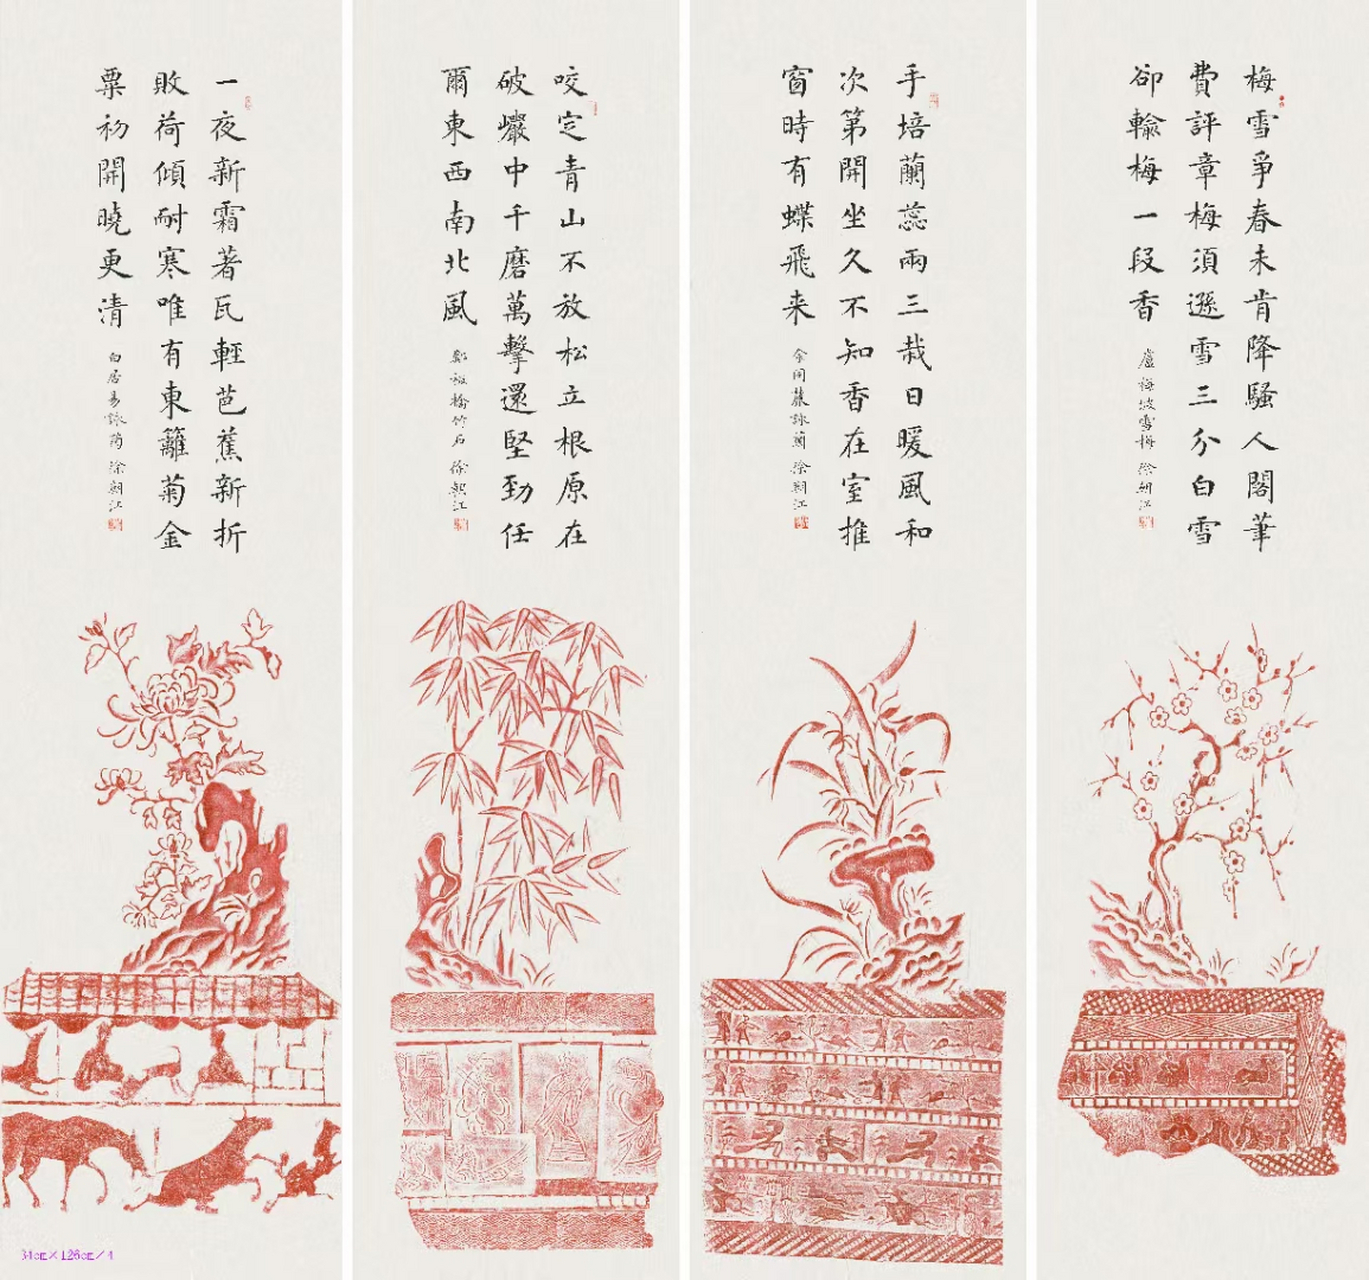 梅雪爭春未肯降騷人閣筆
費評章梅須遜雪三分白雪
卻輸梅一段香
盧梅坡雪梅 徐朝江
手培蘭蕊兩三栽日暖風和
次第開坐久不知香在室推
窗時有蝶飛来
余同麓詠蘭 徐朝江
咬定青山不放松立根原在
破巖中千磨萬擊還堅勁任
爾東西南北風
鄭板橋竹石 徐朝江
一夜新霜著瓦輕芭蕉新折
敗荷傾耐寒唯有東籬菊金
粟初開曉更清
白居易詠菊 徐朝江
34cm×126cm/4